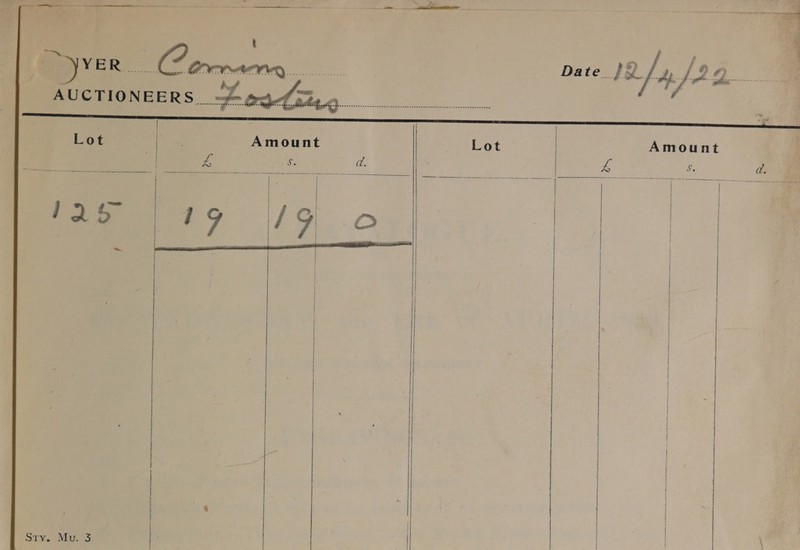 YER Comins Date 12/4/22
AUCTIONEERS Fosters
Lot Amount Lot Amount
£ s. d. £ s. d.
125 19 19 0
STY. MU. 3